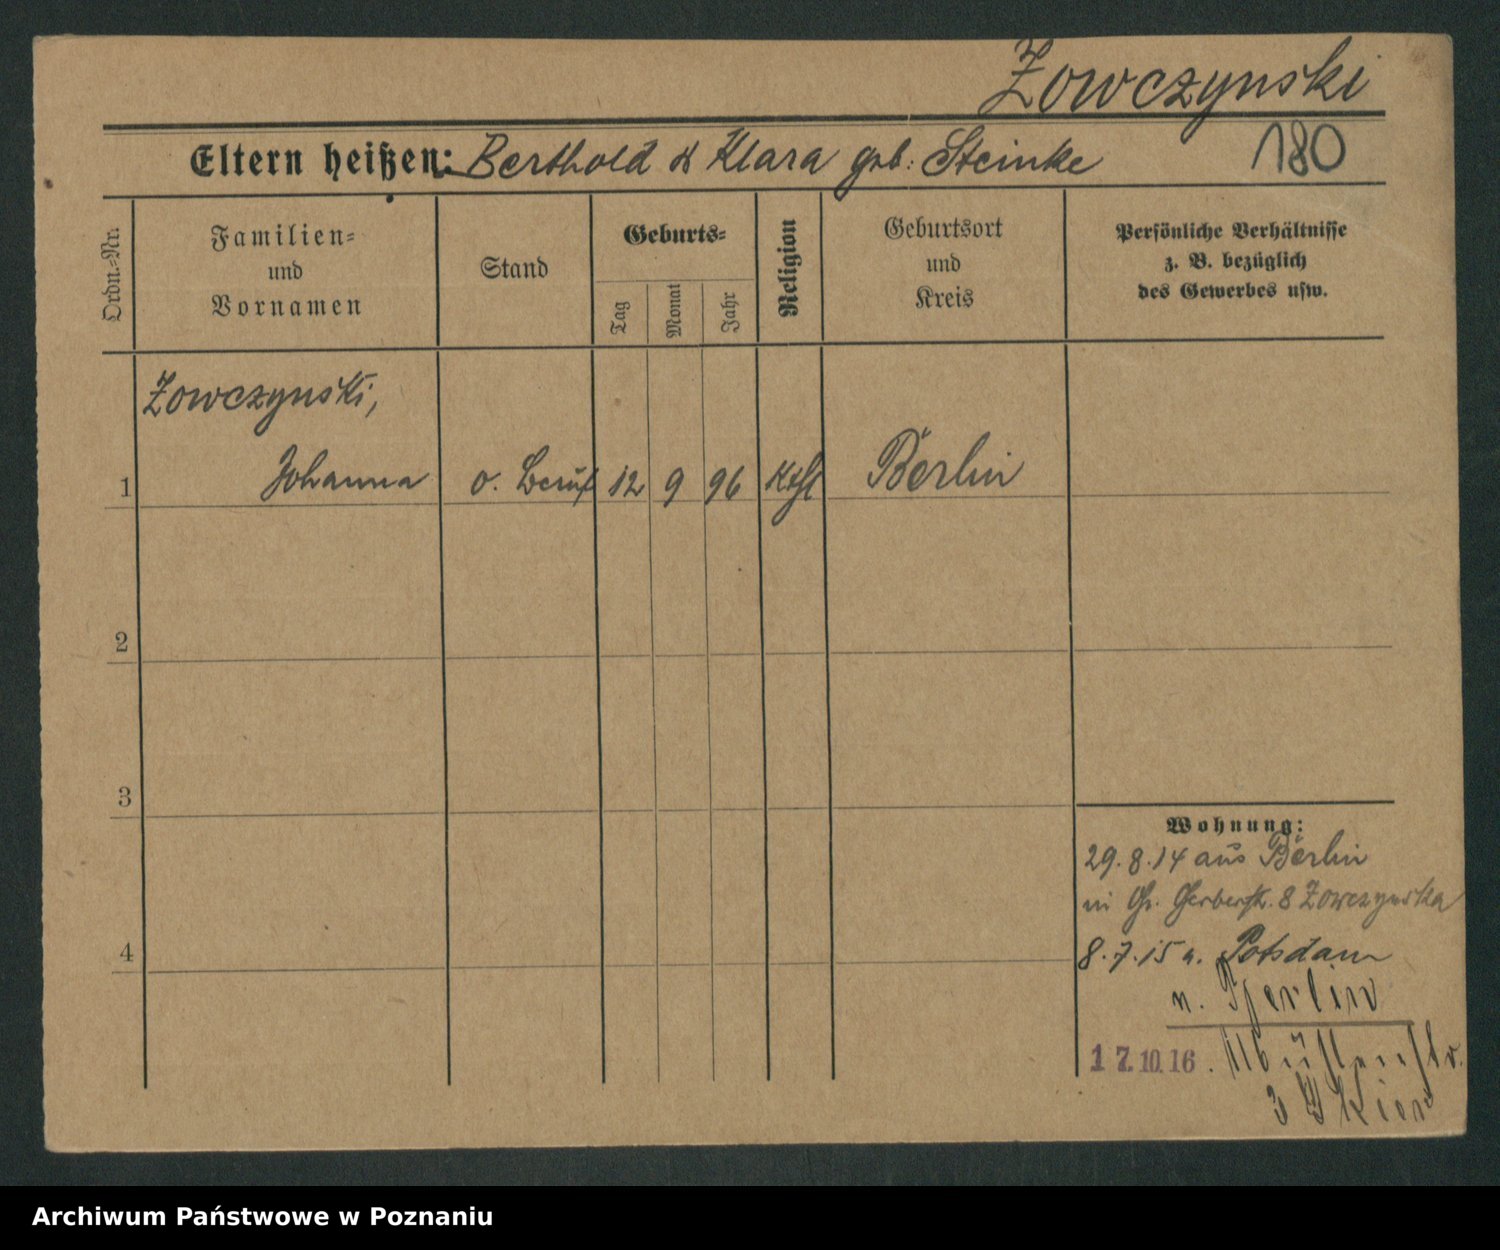 Zowczynski
Eltern heißen: Berthold & Klara geb. Steinke
180
Ordn.=Nr.
Familien=
und
Vornamen
Stand
Geburts=
Tag
Monat
Jahr
Religion
Geburtsort
und
Kreis
Persönliche Verhältnisse
z. B. bezüglich
des Gewerbes usw.
Zowczynski,
1 Johanna o. Beruf 12 9 96 Kthl Berlin
2
3
4
Wohnung:
29.8.14 aus Berlin
in Gr. Gerberstr. 8 Zowczynska
8.7.15 a. Potsdam
n. Berlin
17.10.16.
3